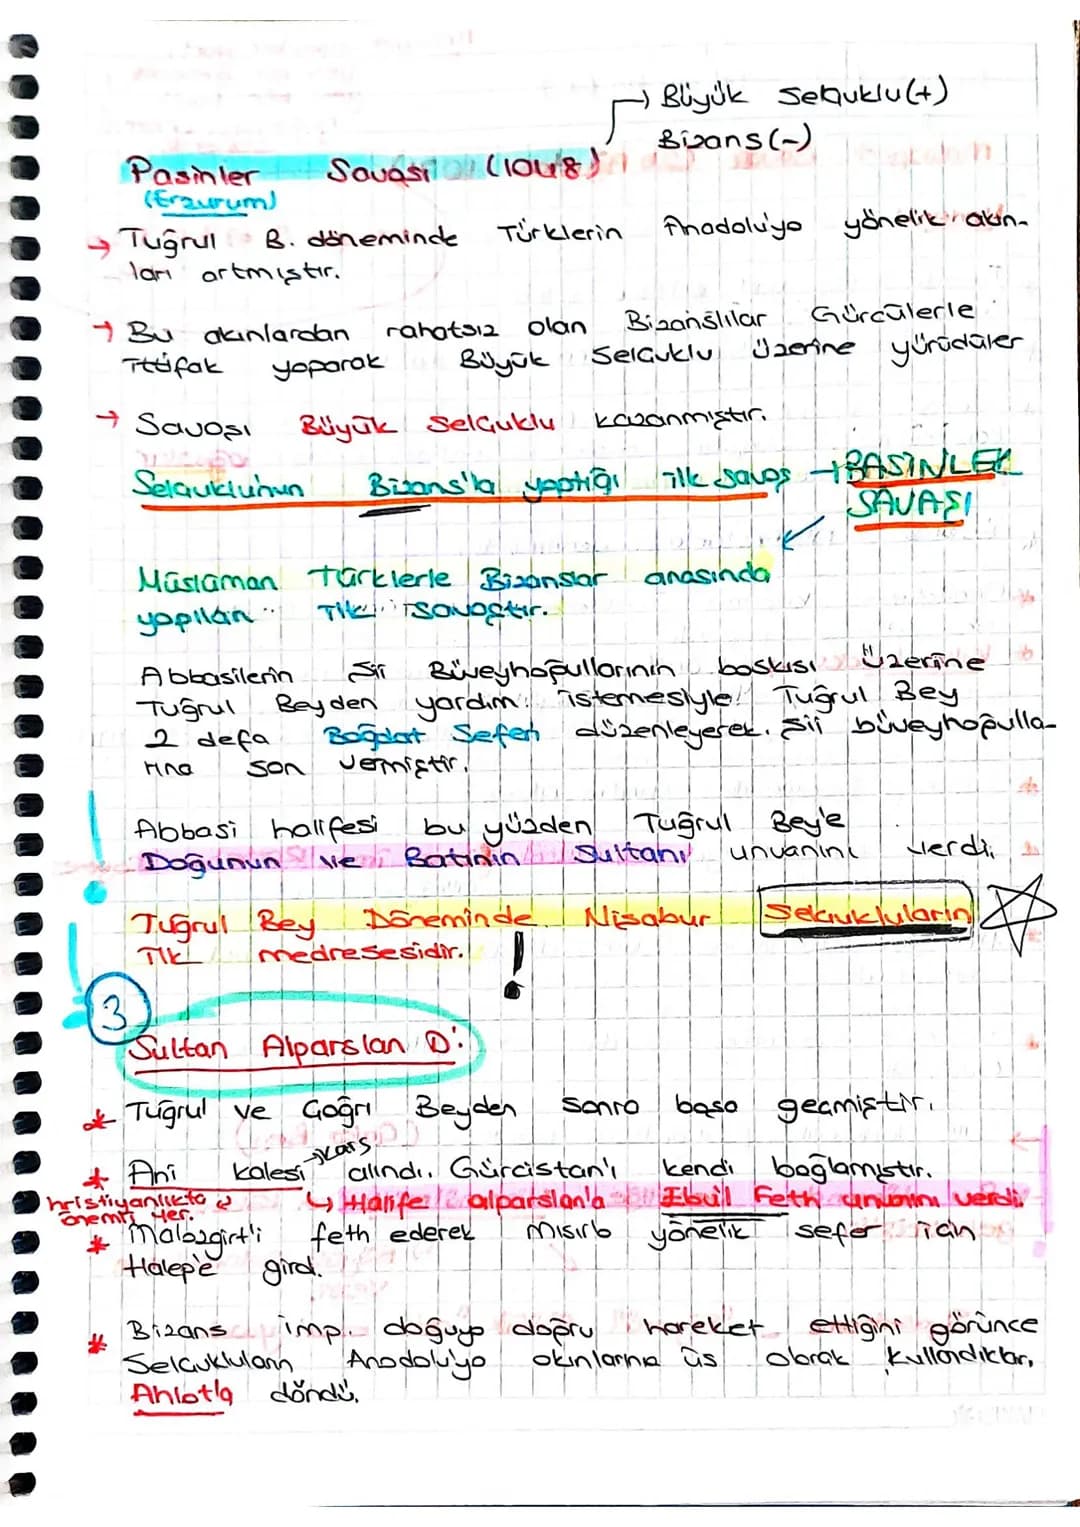 → Büyük Selçuklu(+)
Bizans(-)
Pasinler Savası (1048)
(Erzurum)
→ Tuğrul B. döneminde Türklerin Anadolu'ya yönelik akın-
ları artmıştır.
→ Bu akınlardan rahatsız olan Bizanslılar Gürcülerle
ittifak yaparak Büyük Selçuklu üzerine yürüdüler
→ Savaşı Büyük Selçuklu kazanmıştır.
Selçuklu'nun Bizans'la yaptığı ilk savaş → PASİNLER
SAVAŞI
Müslüman Türklerle Bizanslar arasında
yapılan ilk savaştır.
Abbasilerin Şii Büveyhoğullarının baskısı üzerine
Tuğrul Beyden yardım istemesiyle Tuğrul Bey
2 defa Bağdat Seferi düzenleyerek. Şii büveyhoğulla-
rına son vermiştir.
! Abbasi halifesi bu yüzden Tuğrul Bey'e
Doğunun ve Batının Sultanı unvanını verdi.
! Tuğrul Bey Döneminde Nişabur Selçukluların
ilk medresesidir. !
3
Sultan Alparslan D:
* Tuğrul ve Çağrı Beyden sonra başa geçmiştir.
→ Kars
* Ani kalesi alındı. Gürcistan'ı kendi bağlamıştır.
hristiyanlıkta
önemli yer.
↳ Halife alparslan'a Ebul Feth unvanını verdi.
* Malazgirt'i feth ederek mısırb yönelik sefer için
Halep'e girdi.
* Bizans imp. doğuya doğru hareket ettiğini görünce
Selçukluların Anadolu'ya akınlarına üs olarak kullandıkları,
Ahlat'a döndü.